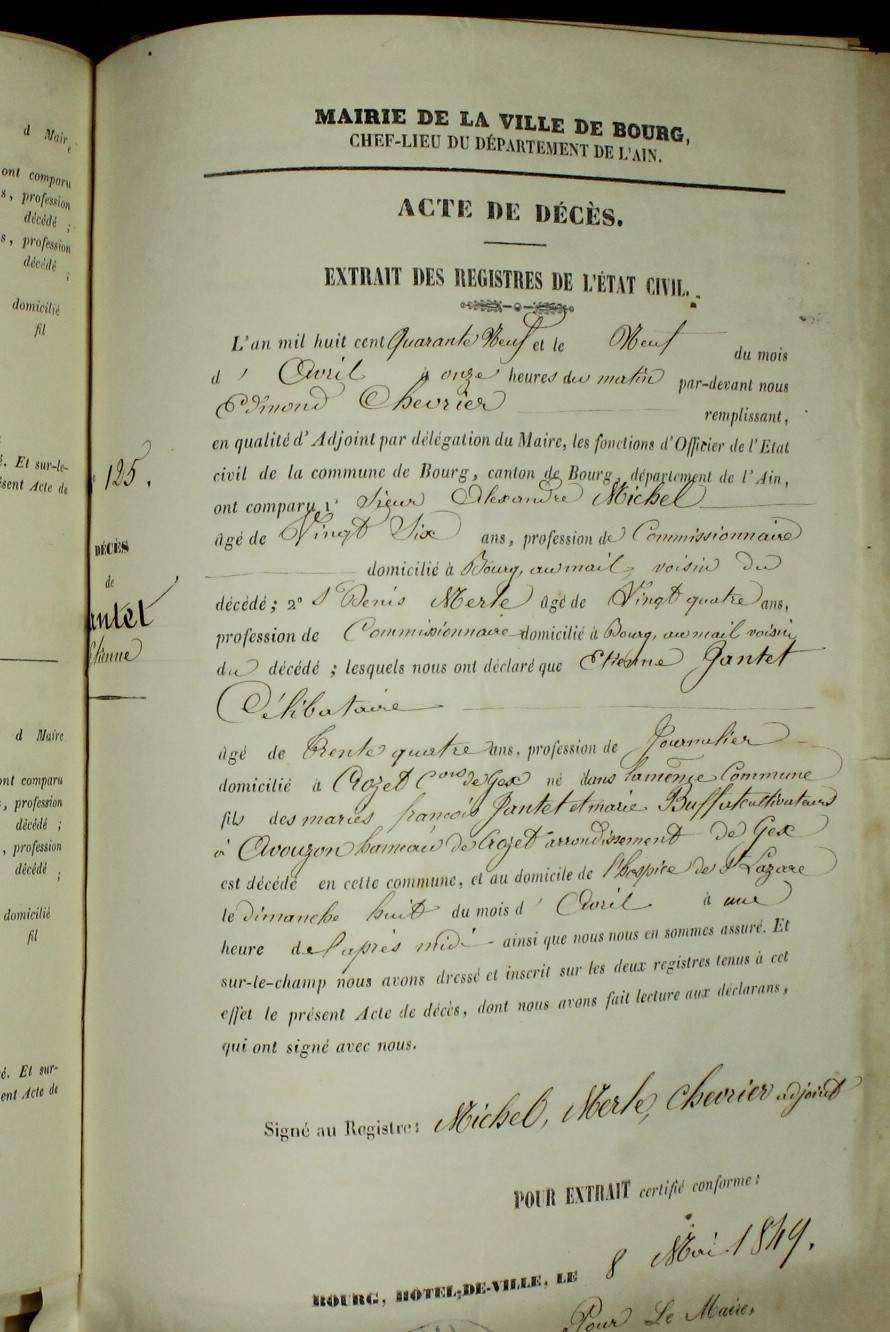 d Maire
ont comparu
s, profession
décédé ;
s, profession
décédé ;
domicilié
fil
é. Et sur-le-
ésent Acte de
d Maire
ont comparu
, profession
décédé ;
, profession
décédé ;
domicilié
fil
é. Et sur-
ent Acte de
N° 125.
DÉCÈS
de
antet
Etienne
MAIRIE DE LA VILLE DE BOURG,
CHEF-LIEU DU DÉPARTEMENT DE L'AIN.
ACTE DE DÉCÈS.
EXTRAIT DES REGISTRES DE L'ÉTAT CIVIL.
L'an mil huit cent Quarante Neuf et le Neuf du mois
d' Avril à onze heures du matin par-devant nous
Edmond Chevrier remplissant,
en qualité d'Adjoint par délégation du Maire, les fonctions d'Officier de l'Etat
civil de la commune de Bourg, canton de Bourg, département de l'Ain,
ont comparu 1° Sieur Alexandre Michel
âgé de Vingt Six ans, profession de Commissionnaire
domicilié à Bourg, au mail, voisin du
décédé ; 2° S Denis Merle âgé de Vingt quatre ans,
profession de Commissionnaire domicilié à Bourg, au mail voisin
du décédé ; lesquels nous ont déclaré que Etienne Jantet
Célibataire
âgé de Trente quatre ans, profession de Journalier
domicilié à Crozet Cons de Gex né dans la même Commune
fils des mariés françois Jantet et marie Buffut cultivateurs
à Avouzon hameau de Crozet arrondissement de Gex
est décédé en cette commune, et au domicile de l'hospice de St Lazare
le dimanche huit du mois d' Avril à une
heure de l'après midi ainsi que nous nous en sommes assuré. Et
sur-le-champ nous avons dressé et inscrit sur les deux registres tenus à cet
effet le présent Acte de décès, dont nous avons fait lecture aux déclarans,
qui ont signé avec nous.
Signé au Registre: Michel, Merle, Chevrier adjoint
POUR EXTRAIT certifié conforme :
BOURG, HÔTEL-DE-VILLE, LE 8 Mai 1849.
Pour Le Maire,